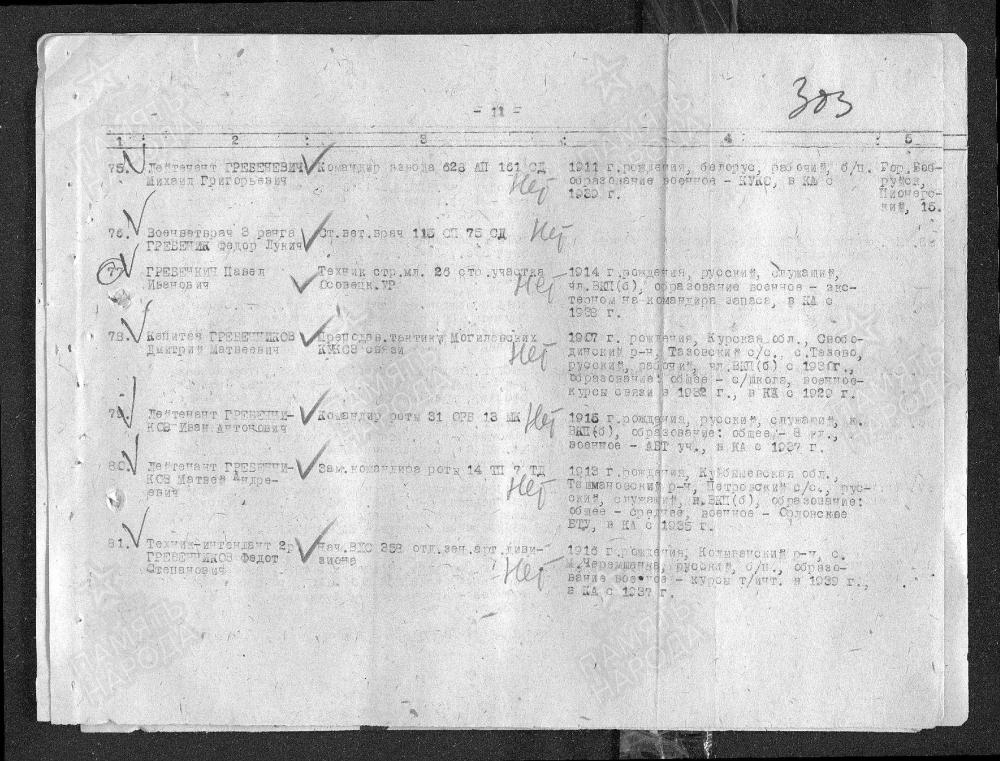 - 11 -
303
1 : 2 : 3 : 4 : 5
75. Лейтенант ГРЕБЕНЕВИЧ Командир взвода 628 АП 161 СД Нет 1911 г.рождения, белорус, рабочий, б/п. Гор.Боб-
Михаил Григорьевич образование военное - КУКС, в КА с руйск,
1939 г. Пионерс-
кий, 15.
76. Военветврач 3 ранга Ст.вет.врач 115 СП 75 СД Нет
ГРЕБЕНИК Федор Лукич
77 ГРЕБЕНКИН Павел Техник стр.мл. 26 стр.участка Нет 1914 г.рождения, русский, служащий,
Иванович Осовецк.УР чл.ВКП(б), образование военное - экс-
терном на командира запаса, в КА с
1938 г.
78. Капитан ГРЕБЕННИКОВ Преподав.тактики Могилевских Нет 1907 г. рождения, Курская обл., Свобо-
Дмитрий Матвеевич КУКСов связи динский р-н, Тазовский с/с., с.Тазово,
русский, рабочий, чл.ВКП(б) с 1930г.,
образование: общее - с/школа, военное-
курсы связи в 1932 г., в КА с 1929 г.
79. Лейтенант ГРЕБЕННИ- Командир роты 31 ОРБ 13 МК Нет 1915 г.рождения, русский, служащий, к.
КОВ Иван Антонович ВКП(б), образование: общее - 8 кл.,
военное - АБТ уч., в КА с 1937 г.
80. Лейтенант ГРЕБЕННИ- Зам.командира роты 14 ТП 7 ТД Нет 1913 г.рождения, Куйбышевская обл.,
КОВ Матвей Андре- Ташмановский р-н, Петровский с/с., рус-
евич ский, служащий, к.ВКП(б), образование:
общее - среднее, военное - Орловское
БТУ, в КА с 1935 г.
81. Техник-интендант 2р Нач.ВХС 258 отд.зен.арт.диви- Нет 1916 г.рождения, Колыванский р-н, с.
ГРЕБЕННИКОВ Федот зиона М.Черемшанка, русский, б/п., образо-
Степанович вание военное - курсы т/инт. в 1939 г.,
в КА с 1937 г.
ПАМЯТЬ
НАРОДА